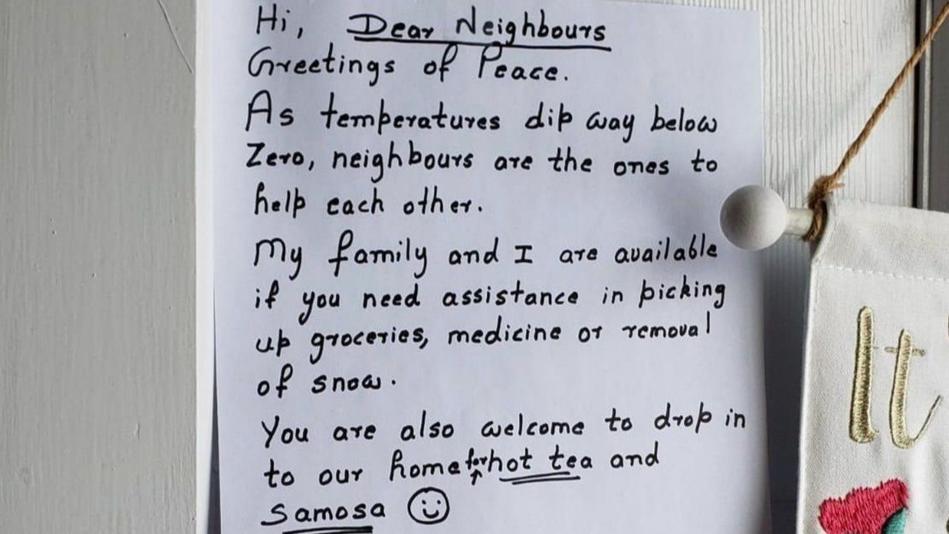 Hi, Dear Neighbours
Greetings of Peace.
As temperatures dip way below
Zero, neighbours are the ones to
help each other.
My family and I are available
if you need assistance in picking
up groceries, medicine or removal
of snow.
You are also welcome to drop in
to our home for hot tea and
Samosa
It